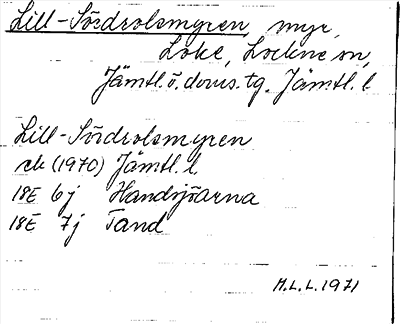 Lill-Sördrolsmyren, myr,
Loke, Lockne sn,
Jämtl. ö. doms. tg. Jämtl. l
Lill-Sördrolsmyren
ek (1970) Jämtl. l
18E 6j Handsjöarna
18E 7j Tand
M.L.L. 1971